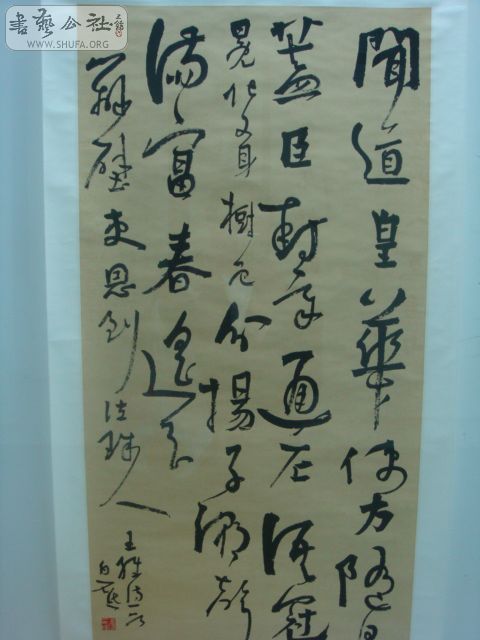 書藝公社
WWW.SHUFA.ORG
聞道皇華使方隨皂
蓋臣封章通左語冠
冕化文身樹色分揚子潮聲
滿富春遙知
辨璧吏恩到泣珠人
王維詩一首
白蕉